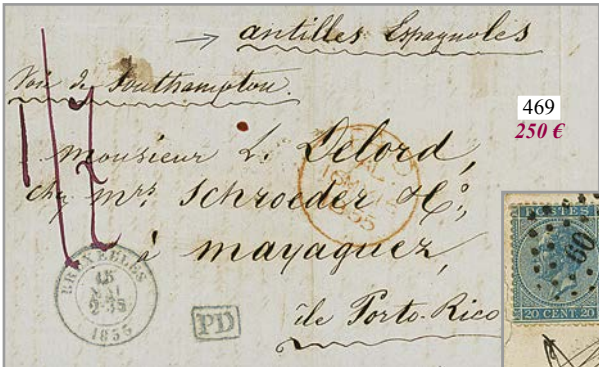 → antilles Espagnoles
Voie de Southampton.
469
250 €
Monsieur L. Delord,
chez Mrs. Schroeder & Co,
à Mayaguez,
île Porto-Rico
BRUXELLES
15
MAI
2-3S
1855
PD
1855
POSTES
60
20 CENT. 20